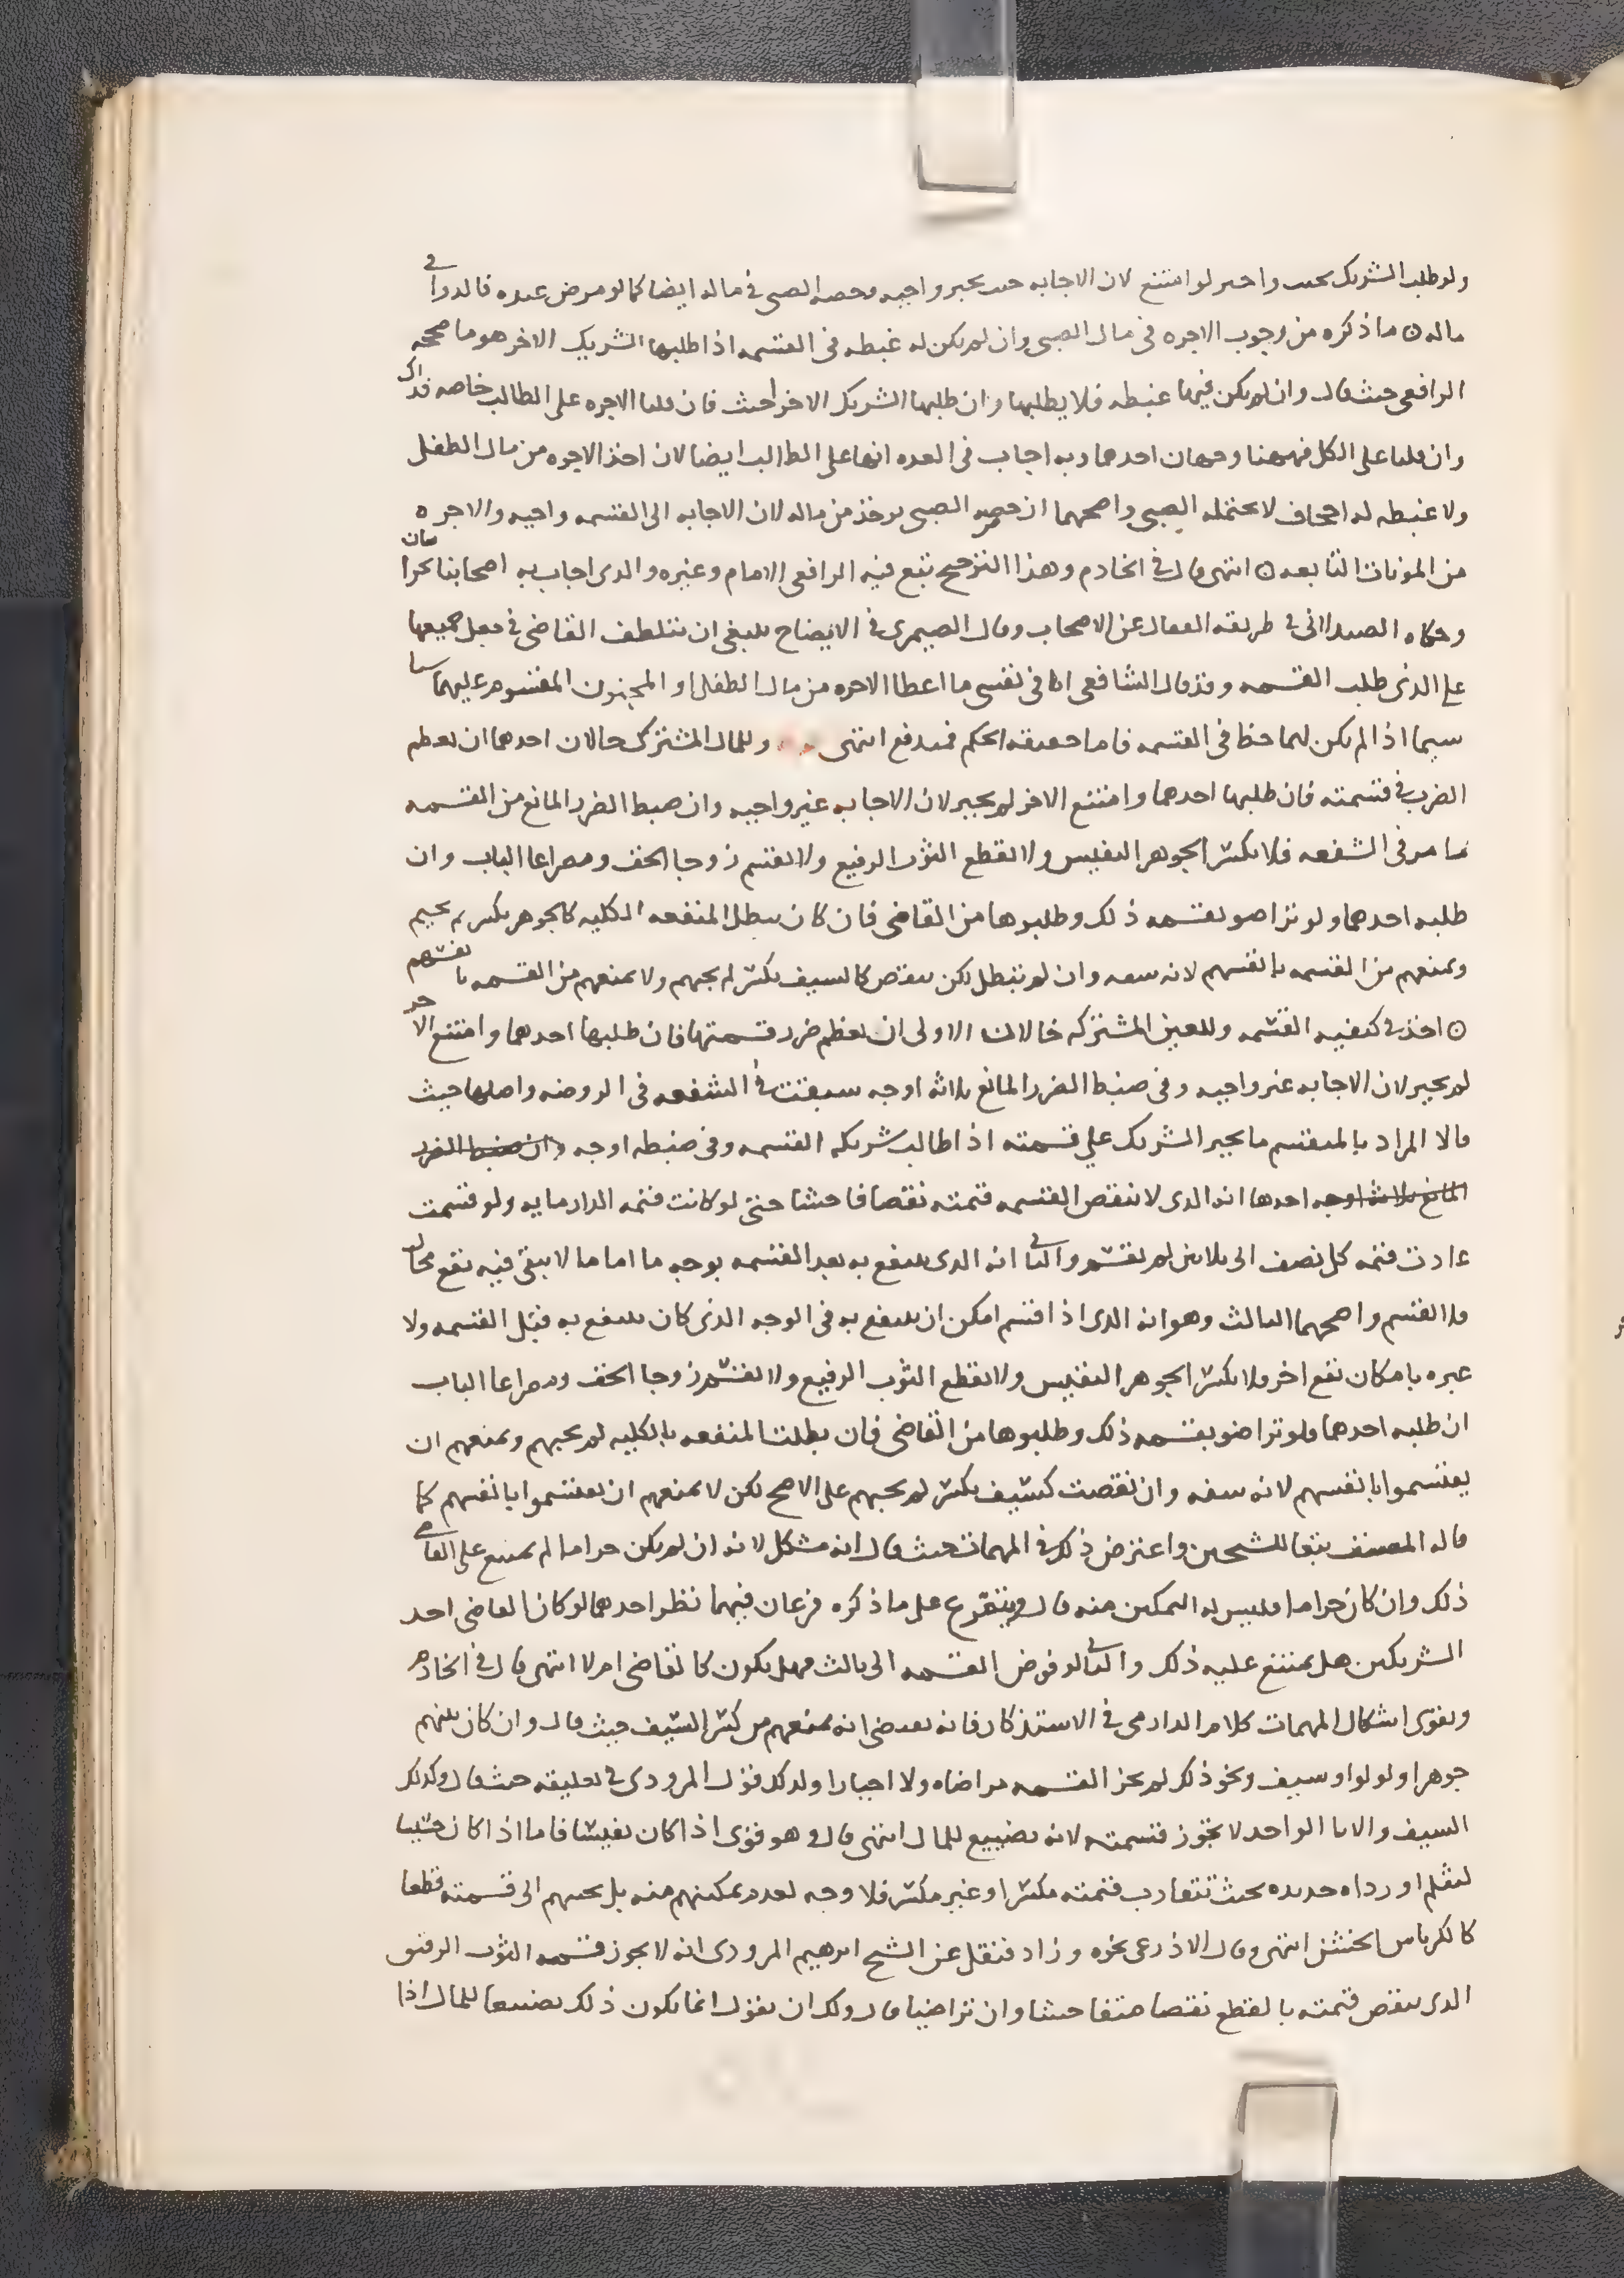 ولو طلب الشريك بحيث واجبر لو امتنع لان الاجابه حيث يجبر واجبه وحصه الصبي في ماله ايضا كما لو مرض عبده فالدوا في
ماله ه ما ذكره من وجوب الاجره في مال الصبي وان لم يكن له غبطه في القسمه اذا طلبها الشريك الاخر هو ما صححه
الرافعي حيث قال وان لم يكن فيها غبطه فلا يطلبها وان طلبها الشريك الاخر اجيب فان قلنا الاجره على الطالب خاصه فذاك
وان قلنا على الكل فههنا وجهان احدهما وبه اجاب في العده انها على الطالب ايضا لان اخذ الاجره من مال الطفل
ولا غبطه له اجحاف لا يحتمله الصبي واصحهما ان حصه الصبي توخذ من ماله لان الاجابه الى القسمه واجبه والاجره
من المونات التابعه ه انتهى قال في الخادم وهذا الترجيح تبع فيه الرافعي الامام وغيره والذي اجاب به اصحابنا بخراسان
وحكاه الصيدلاني في طريقه القفال عن الاصحاب وقال الصيمري في الايضاح ينبغي ان يتلطف القاضي في جعل جميعها
على الذي طلب القسمه وقد قال الشافعي انا في نفسي ما اعطا الاجره من مال الطفل او المجنون المقسوم عليهما سيا
سيما اذا لم يكن لهما حظا في القسمه فاما حقيقه الحكم فيدفع انتهى وللمال المشترك حالان احدهما ان يعظم
الضرب في قسمته فان طلبها احدهما وامتنع الاخر لم يجبر لان الاجابه غير واجبه وان ضبط الضرر المانع من القسمه
ما مر في الشفعه فلا يكسر الجوهر النفيس ولا يقطع الثوب الرفيع ولا يقسم زوجا الخف ومصراعا الباب وان
طلبه احدهما ولو تراضوا بقسمه ذلك وطلبوها من القاضي فان كان يبطل المنفعه الكليه كالجوهر يكسر لم يجبهم
ويمنعهم من القسمه بانفسهم لانه سفه وان لم تبطل لكن ينقص كالسيف يكسر لم يجبهم ولا يمنعهم من القسمه بانفسهم
ه اخذ في كيفيه القسمه وللعين المشتركه حالان الاولى ان يعظم ضرر قسمتها فان طلبها احدهما وامتنع الاخر
لم يجبر لان الاجابه غير واجبه وفي ضبط الضرر المانع ثلاثه اوجه سبقت في الشفعه في الروضه واصلها حيث
قالا المراد بالمنقسم ما يجبر الشريك على قسمته اذا طالب شريكه القسمه وفي ضبطه اوجه وان ضبط الضرر
المانع ثلاثه اوجه احدها انه الذي لا تنقص القسمه قيمته نقصا فاحشا حتى لو كانت قيمه الدار مايه ولو قسمت
عادت قيمه كل نصف الى ثلاثين لم تقسم والثاني انه الذي ينتفع به بعد القسمه بوجه ما اما ما لا يبقى فيه نفع بحال
فلا يقسم واصحهما الثالث وهو انه الذي اذا قسم امكن ان ينتفع به في الوجه الذي كان ينتفع به قبل القسمه ولا
عبره بامكان نفع اخر فلا يكسر الجوهر النفيس ولا يقطع الثوب الرفيع ولا يقسم زوجا الخف ومصراعا الباب
ان طلبه احدهما ولو تراضوا بقسمه ذلك وطلبوها من القاضي فان بطلت المنفعه بالكليه لم يجبهم ويمنعهم ان
يقتسموا بانفسهم لانه سفه وان نقصت كسيف يكسر لم يجبهم على الاصح لكن لا يمنعهم ان يقتسموا بانفسهم كما
قاله المصنف تبعا للشيخين واعترض ذلك في المهمات حيث قال انه مشكل لانه ان لم يكن حراما لم يمتنع على القاضي
ذلك وان كان حراما فليس له التمكين منه قال ويتفرع على ما ذكره فرعان فيهما نظر احدهما لو كان القاضي احد
الشريكين هل يمتنع عليه ذلك والثاني لو فوض القسمه الى ثالث فهل يكون كالقاضي ام لا انتهى قال في الخادم
ويقوى اشكال المهمات كلام الدارمي في الاستذكار فانه يقتضي انه يمنعهم من كسر السيف حيث قال وان كان بينهم
جوهرا او لولوا وسيف ونحو ذلك لم يجز القسمه مراضاه ولا اجبارا ولذلك قول المروذي في تعليقه حيث قال وكذلك
السيف والانا الواحد لا تجوز قسمته لانه تضييع للمال انتهى قال وهو قوي اذا كان نفيسا فاما اذا كان خشبا
لسلم او رداه حديده بحيث تتقارب قيمته مكسرا او غير مكسر فلا وجه لعدم تمكينهم منه بل يجيبهم الى قسمته قطعا
كالكرباس الخشن انتهى وقال الاذرعي نحوه وزاد فنقل عن الشيخ ابرهيم المروذي انه لا يجوز قسمه الثوب الرفيق
الذي ينقص قيمته بالقطع نقصا متفاحشا وان تراضيا قال ولك ان تقول انما يكون ذلك تضييعا للمال اذا